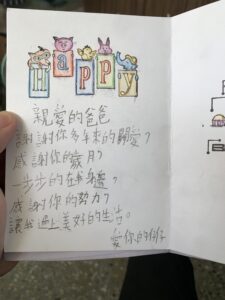 Happy
親愛的爸爸
謝謝你多年來的關愛，
感謝你的歲月，
一步步的在我身邊，
感謝你的努力，
讓我過上美好的生活。
愛你的